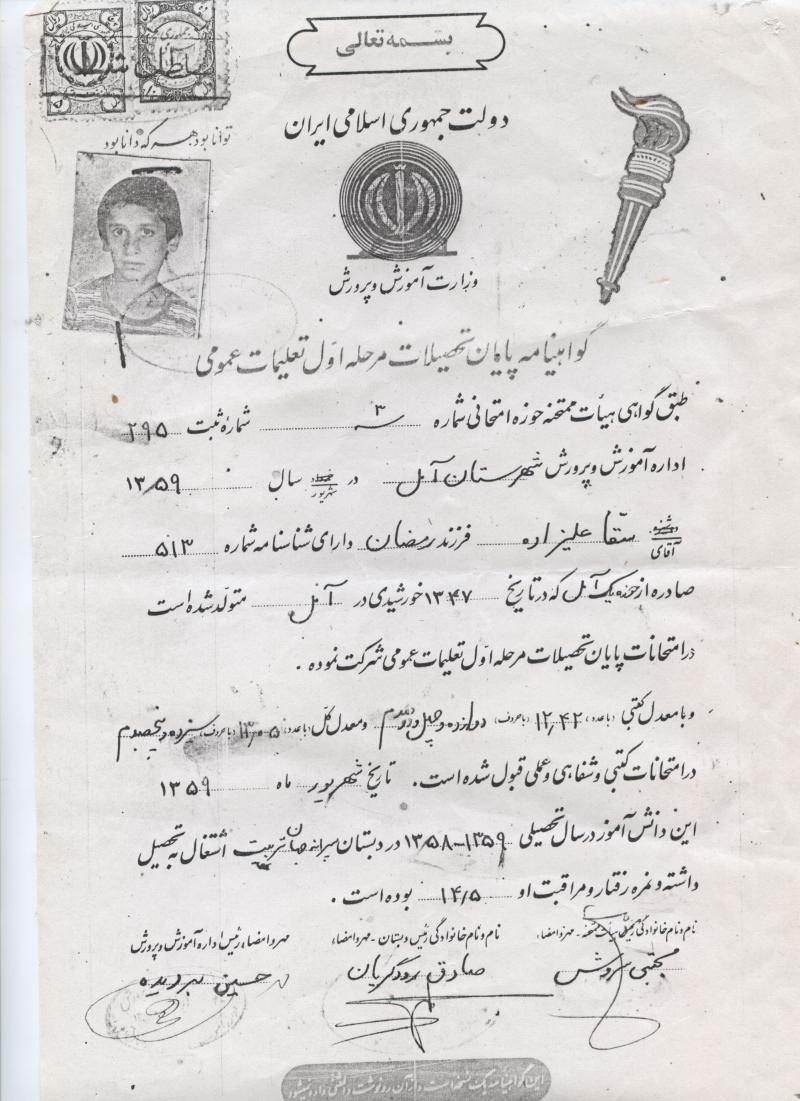 بسمه تعالی
دولت جمهوری اسلامی ایران
توانا بود هر که دانا بود
وزارت آموزش و پرورش
گواهینامه پایان تحصیلات مرحله اوّل تعلیمات عمومی
طبق گواهی هیأت ممتحنه حوزه امتحانی شماره ۳ شماره ثبت ۲۹۵
اداره آموزش و پرورش شهرستان آمل در شهریور سال ۱۳۵۹
آقای سقا علیزاده فرزند رمضان دارای شناسنامه شماره ۵۱۳
صادره از حوزه یک آمل که در تاریخ ۱۳۴۷ خورشیدی در آمل متولّد شده است
در امتحانات پایان تحصیلات مرحله اوّل تعلیمات عمومی شرکت نموده .
و با معدل کتبی (با عدد) ۱۲/۴۲ (با حروف) دوازده و چهل و دو صدم و معدل کل (با عدد) ۱۳/۰۵ (با حروف) سیزده و پنج صدم
در امتحانات کتبی و شفاهی و عملی قبول شده است . تاریخ شهریور ماه ۱۳۵۹
این دانش آموز در سال تحصیلی ۱۳۵۹-۱۳۵۸ در دبستان پسرانه تربیت اشتغال به تحصیل
داشته و نمره رفتار و مراقبت او ۱۴/۵ بوده است .
نام و نام خانوادگی رئیس هیأت ممتحنه - مهر و امضاء، نام و نام خانوادگی رئیس دبستان - مهر و امضاء، مهر و امضاء، رئیس اداره آموزش و پرورش
مجتبی سروش صادق رودگریان حسین
این گواهینامه یک نسخه است و از آن رونوشت داده نمیشود